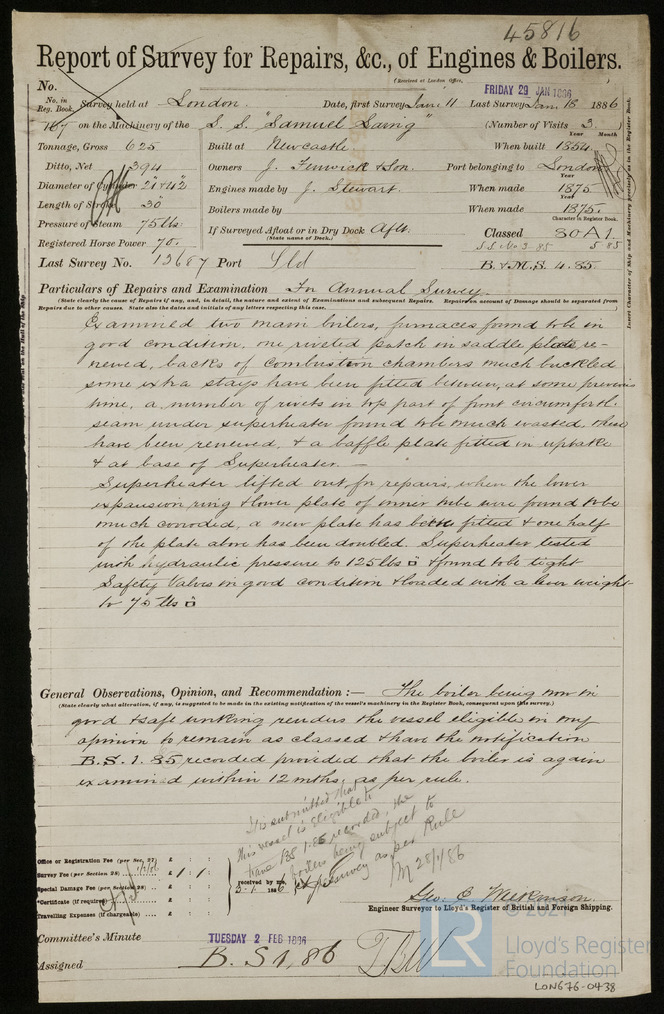 45816
Report of Survey for Repairs, &c., of Engines & Boilers.
(Received at London Office, FRIDAY 29 JAN 1886
No.
No. in Reg. Book. Survey held at London. Date, first Survey Jan: 11 Last Survey Jan. 18 1886
767 on the Machinery of the S. S. "Samuel Laing" (Number of Visits 3.
Year Month
Tonnage, Gross 625 Built at Newcastle When built 1854.
Ditto, Net 394 Owners J. Fenwick & Son. Port belonging to London
Year
Diameter of Cylinder 21 & 42 Engines made by J. Stewart. When made 1875
Year
Length of Stroke 30 Boilers made by When made 1875.
Character in Register Book.
Pressure of Steam 75 lbs: If Surveyed Afloat or in Dry Dock Aflt. Classed 80 A 1.
(State name of Dock.)
Registered Horse Power 70. S.S. No 3. 85 5 85
Last Survey No. 13687 Port Sld B. & M. S. 4. 85
Particulars of Repairs and Examination For Annual Survey.
(State clearly the cause of Repairs if any, and, in detail, the nature and extent of Examinations and subsequent Repairs. Repairs on account of Damage should be separated from
Repairs due to other causes. State also the dates and initials of any letters respecting this case.
Examined two main boilers, furnaces found to be in
good condition, one riveted patch in saddle plate re-
newed, backs of combustion chambers much buckled
some extra stays have been fitted between, at some previous
time, a number of rivets in top part of front circumferel.
seam under superheater found to be much wasted, these
have been renewed, & a baffle plate fitted in uptake
& at base of Superheater. —
Superheater lifted out for repairs, when the lower
expansion ring & lower plate of inner tube were found to be
much corroded, a new plate has been fitted & one half
of the plate above has been doubled. Superheater tested
with hydraulic pressure to 125 lbs □" & found to be tight
Safety Valves in good condition & loaded with a lever weight
to 75 lbs □"
General Observations, Opinion, and Recommendation :— The boiler being now in
(State clearly what alteration, if any, is suggested to be made in the existing notification of the vessel's machinery in the Register Book, consequent upon this survey.)
good & safe working renders the vessel eligible in my
opinion to remain as classed & have the notification
B. S. 1. 85 recorded provided that the boiler is again
examined within 12 mths. as per rule.
It is submitted that
this vessel is eligible to
have BS 1.86 recorded, the
boilers being subject to
survey as per Rule
28/1/86
Office or Registration Fee (per Sec. 27) £ : :
Survey Fee (per Section 28) £ 1 : 1 :
Special Damage Fee (per Section 28) £ : :
*Certificate (if required) £ : :
Travelling Expenses (if chargeable) £ : :
received by me,
Geo. E. Wilkinson.
Engineer Surveyor to Lloyd's Register of British and Foreign Shipping.
Committee's Minute TUESDAY 2 FEB 1886
Assigned B. S 1, 86
Insert Character of Ship and Machinery precisely as in the Register Book.
© 2021
LR
Lloyd's Register
Foundation
LON676-0438